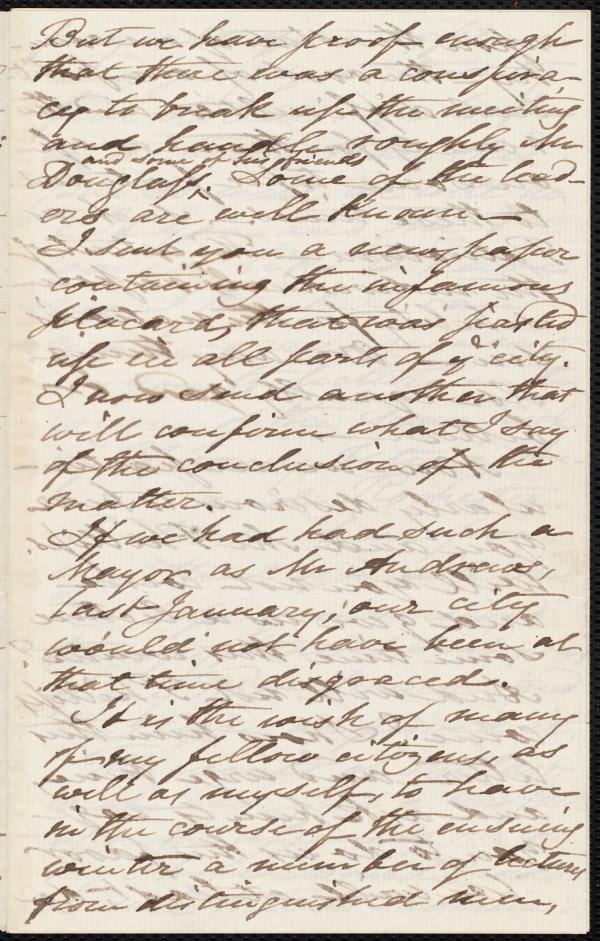 But we have proof enough
that there was a conspira-
cy to break up the meeting
and handle roughly Mr
and some of his friends
Douglass. Some of the lead-
ers are ^ well known—
I sent you a newspaper
containing the infamous
placard, that was pasted
up in all parts of ye city.
I now send another that
will confirm what I say
of the conclusion of the
matter.
If we had had such a
Mayor as Mr Andrews,
last January, our city
would not have been at
that time disgraced.
It is the wish of many
of my fellow citizens, as
well as myself, to have
in the course of the ensuing
winter a number of lectures
from distinguished men,